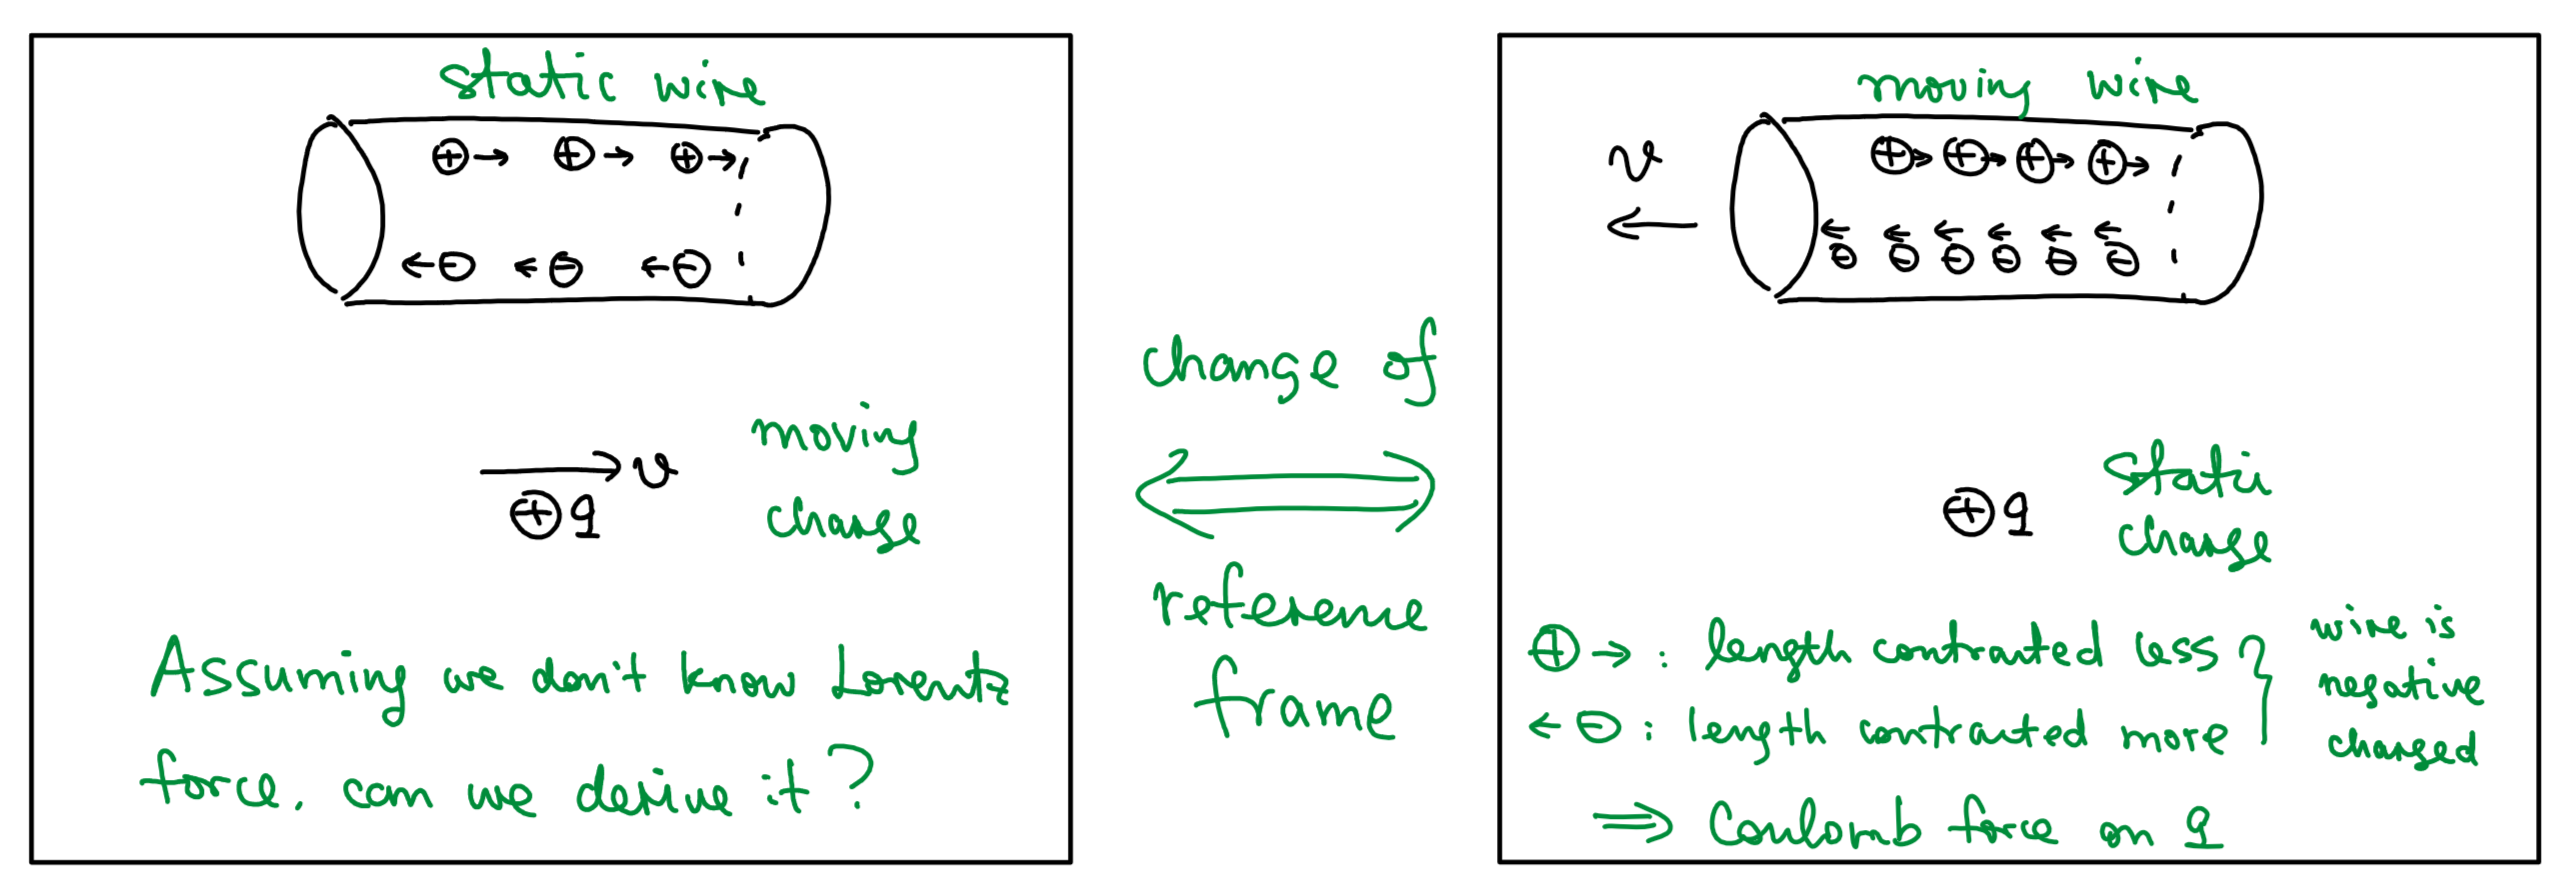 static wire
⊕→ ⊕→ ⊕→
←⊖ ←⊖ ←⊖
→ v
⊕ q
moving
charge
Assuming we don't know Lorentz
force. can we derive it?
change of
reference
frame
moving wire
v
←
⊕→ ⊕→ ⊕→ ⊕→
← ← ← ← ← ←
⊖ ⊖ ⊖ ⊖ ⊖ ⊖
⊕ q
static
charge
⊕→ : length contracted less
←⊖ : length contracted more
wire is
negative
charged
⇒ Coulomb force on q